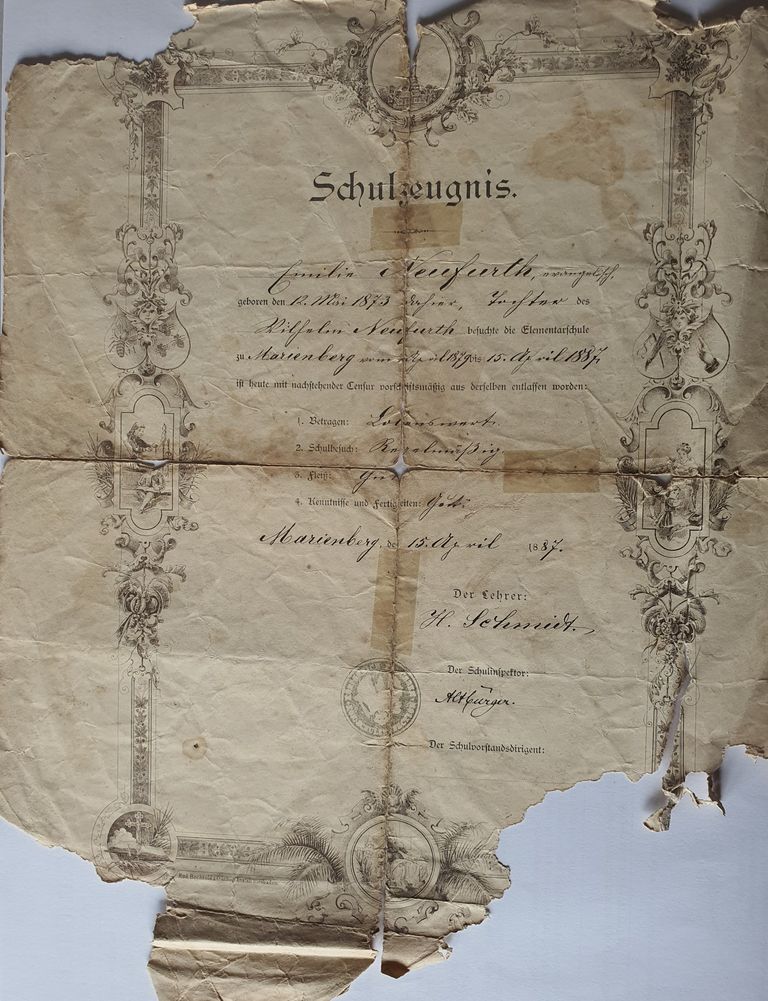 Schulzeugnis.
Emilie Neufurth, evangelisch,
geboren den 12. Mai 1873 dahier, Tochter des
Wilhelm Neufurth besuchte die Elementarschule
zu Marienberg vom April 1879 bis 15. April 1887,
ist heute mit nachstehender Censur vorschriftsmäßig aus derselben entlassen worden:
1. Betragen: Lobenswert.
2. Schulbesuch: Regelmäßig
3. Fleiß: Gut
4. Kenntnisse und Fertigkeiten: Gut.
Marienberg, den 15. April 1887.
Der Lehrer:
H. Schmidt.
Der Schulinspektor:
Altbürger.
Der Schulvorstandsdirigent: